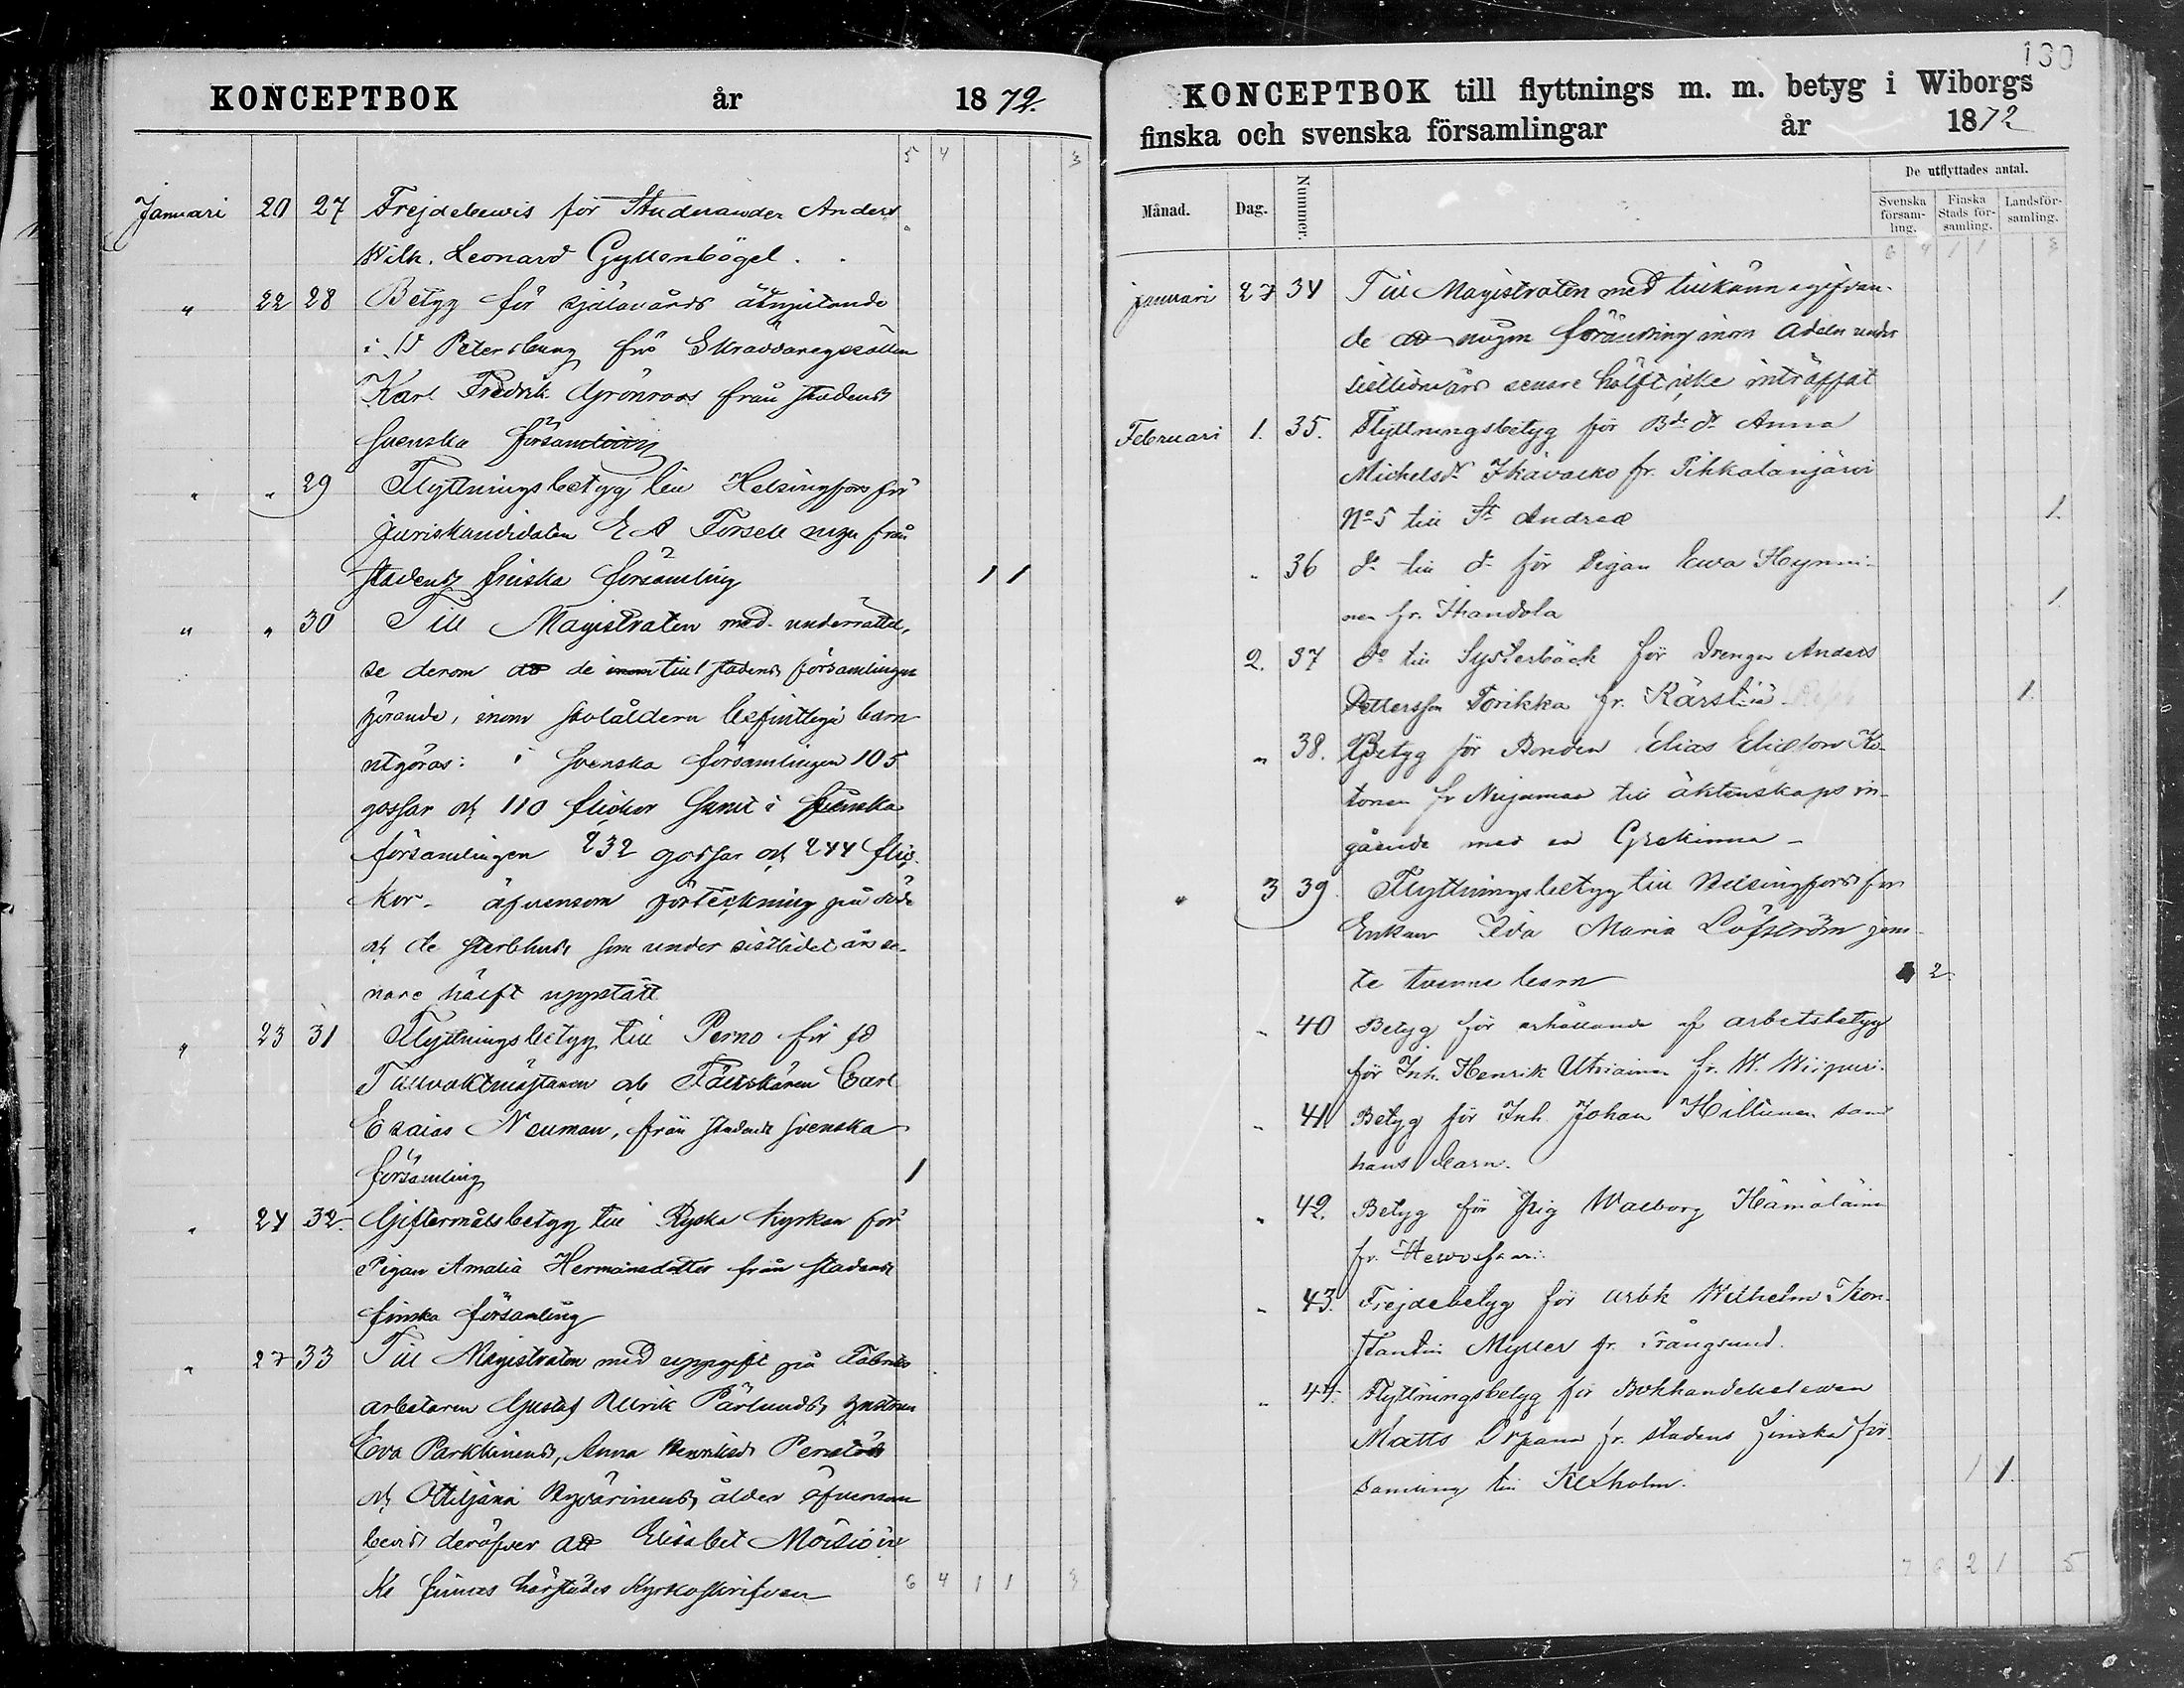 KONCEPTBOK år 1872.
5 4 3
Januari 20 27 Frejdebewis för Studeranden Anders
Wilh. Leonard Gyllenbögel.
" 22 28 Betyg för själavårds åtnjutande
i St Petersburg för Skräddaregesällen
Karl Fredrik Grönroos från stadens
svenska församling
" " 29 Flyttningsbetyg till Helsingfors för
Juriskandidaten E A Forsell  från
stadens finska församling 1 1
" " 30 Till Magistraten med underrättel-
se derom att de inom till stadens församlingar
hörande, inom skolåldern befintliga barn
utgöras: i svenska församlingen 105
gossar och 110 flickor samt i finska
församlingen 232 gossar och 244 flic-
kor - äfvensom förteckning på döde
och de sterbhus, som under sistlidet års se-
nare hälft uppstått
" 23 31 Flyttningsbetyg till Perno för fd
Tullvaktmästaren och Fältskären Carl
Esaias Neuman, från stadens svenska
församling 1
" 24 32. Giftermålsbetyg till Ryska kyrkan för
Pigan Amalia Hermansdotter från stadens
finska församling
" 27 33 Till Magistraten med uppgift på Fabriks
arbetaren Gustaf Ullrik Pärlunds, hustrun
Eva Parkkinens, Anna Henriksd.
och Ottiljana Hyvärinens, ålder äfvensom
bevis deröfver att Elisabet Moisio ic-
ke finnes härstädes kyrkoskrifven 6 4 1 1 3
130
KONCEPTBOK till flyttnings m. m. betyg i Wiborgs
finska och svenska församlingar år 1872
Månad. Dag. Nummer. De utflyttades antal.
Svenska församling. Finska Stads församling. Landsförsamling.
6 4 1 1 3
januari 27 34 Till Magistraten med tillkännagifvan-
de att någon förändring inom Adeln under
sistlidne års senare hälft icke inträffat
Februari 1. 35. Flyttningsbetyg för Bde dr Anna
Michelsdr Ikävalko fr. Pihkalanjärvi
No 5 till St Andreæ 1.
" 36 do till do för Pigan Ewa Heynni-
nen fr. Itandola 1.
2. 37 do till Systerbäck för Drengen Anders
Pettersson Torikka fr. Kärstilä 1.
" 38. Betyg för Bonden Elias Eliasson Ko-
tonen fr Nuijamaa till äktenskaps in-
gående med en Grekinna -
" 3 39. Flyttningsbetyg till Helsingfors för
Enkan Ida Maria Löfström jem-
te tvenne barn 2.
" 40 Betyg för erhållande af arbetsbetyg
för Inh. Henrik Utriainen fr. W. Wiipuri.
" 41. Betyg för Inh. Johan Hiltunen samt
hans barn.
" 42. Betyg för Pig Walborg Hämäläinen
fr. Hewossaari.
" 43. Frejdebetyg för arbk Wilhelm Kon-
stantin Myller fr. Trångsund.
" 44. Flyttningsbetyg för Bokhandelseleven
Matts Orpana fr. stadens finska för-
samling till Kexholm. 1 1.
7 6 2 1 5